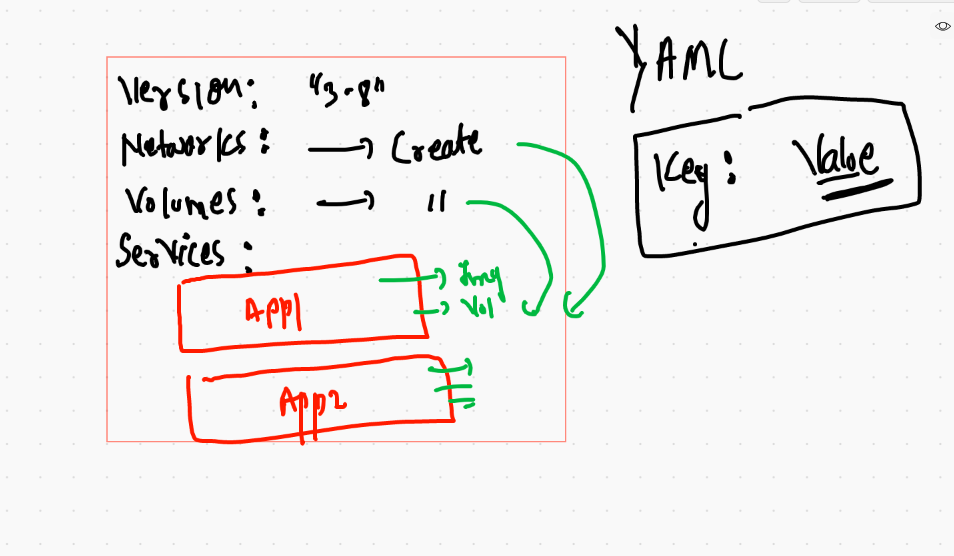 Version: "3-8"
Networks: → Create
Volumes: → 11
Services:
App1
→ Img
→ Vol
App2
YAML
Key: Value